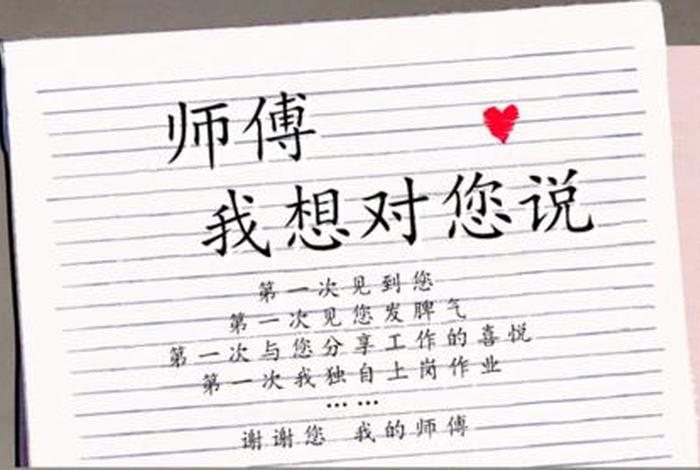 师傅
我想对您说
第一次见到您
第一次见您发脾气
第一次与您分享工作的喜悦
第一次我独自上岗作业
……
谢谢您 我的师傅